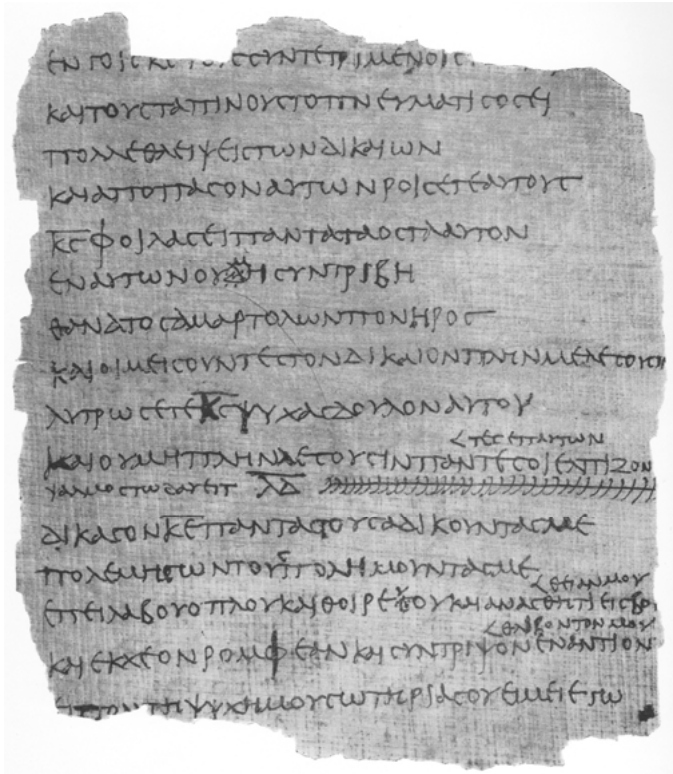 ϹΥΝΤΕΤΡΙΜΕΝΟΙϹ
ΚΑΙΤΟΥϹΤΑΠΙΝΟΥϹΤΟΠΝΕΥΜΑΤΙϹΟϹΕΙ
ΠΟΛΛΕΘΛΕΙΨΕΙϹΤΩΝΔΙΚΑΙΩΝ
ΚΑΙΑΠΟΠΑϹΟΝΑΥΤΩΝΡΟΙϹΕΤΕΑΥΤΟΥϹ
Κ̅Ϲ̅ΦΟΙΛΑϹΕΙΠΑΝΤΑΤΑΟϹΤΑΑΥΤΟΝ
ΕΝΑΥΤΩΝΟΥΔΗϹΥΝΤΡΙΒΗ
ΘΑΝΑΤΟϹΑΜΑΡΤΟΛΩΝΠΟΝΗΡΟϹ
ΚΑΙΟΙΜΕΙϹΟΥΝΤΕϹΤΟΝΔΙΚΑΙΟΝ
ΛΥΤΡΩϹΕΤΕΚ̅Ϲ̅ΨΥΧΑϹΔΟΥΛΟΝΑΥΤΟΥ
<ΤΕϹΕΠΑΥΤΩΝ
ΚΑΙΟΥΜΗΠΛΗΝΛΕϹΟΥϹΙΝΠΑΝΤΕϹΟΙΕΛΠΙΖΟΝ
ΨΑΛΜΟϹΤΩΔΑΥΕΙΤ Λ̅Δ̅
ΔΙΚΑϹΟΝΚ̅Ε̅ΠΑΝΤΑϹΤΟΥϹΑΔΙΚΟΥΝΤΑϹΜΕ
ΠΟΛΕΜΗϹΩΝΤΟΥϹΠΟΛΗΜΟΥΝΤΑϹΜΕ
<ΘΕΙΑΝΜΟΥ
ΕΠΕΙΛΑΒΟΥΟΠΛΟΥΚΑΙΘΟΙΡΕΟΥΚΑΙΑΝΑϹΘΗΤΙΕΙϹΒΟ
<ΘΛΙΒΟΝΤΟΝΜΟΥ
ΚΑΙΕΚΧΕΟΝΡΟΜΦΕΑΝΚΑΙϹΥΝΤΡΙΨΟΝΕΝΑΝΤΙΟΝ
ΤΗΨΥΧΗΜΟΥϹΩΤΗΡΙΑϹΟΥΕΙΜΕΙΕΓΩ